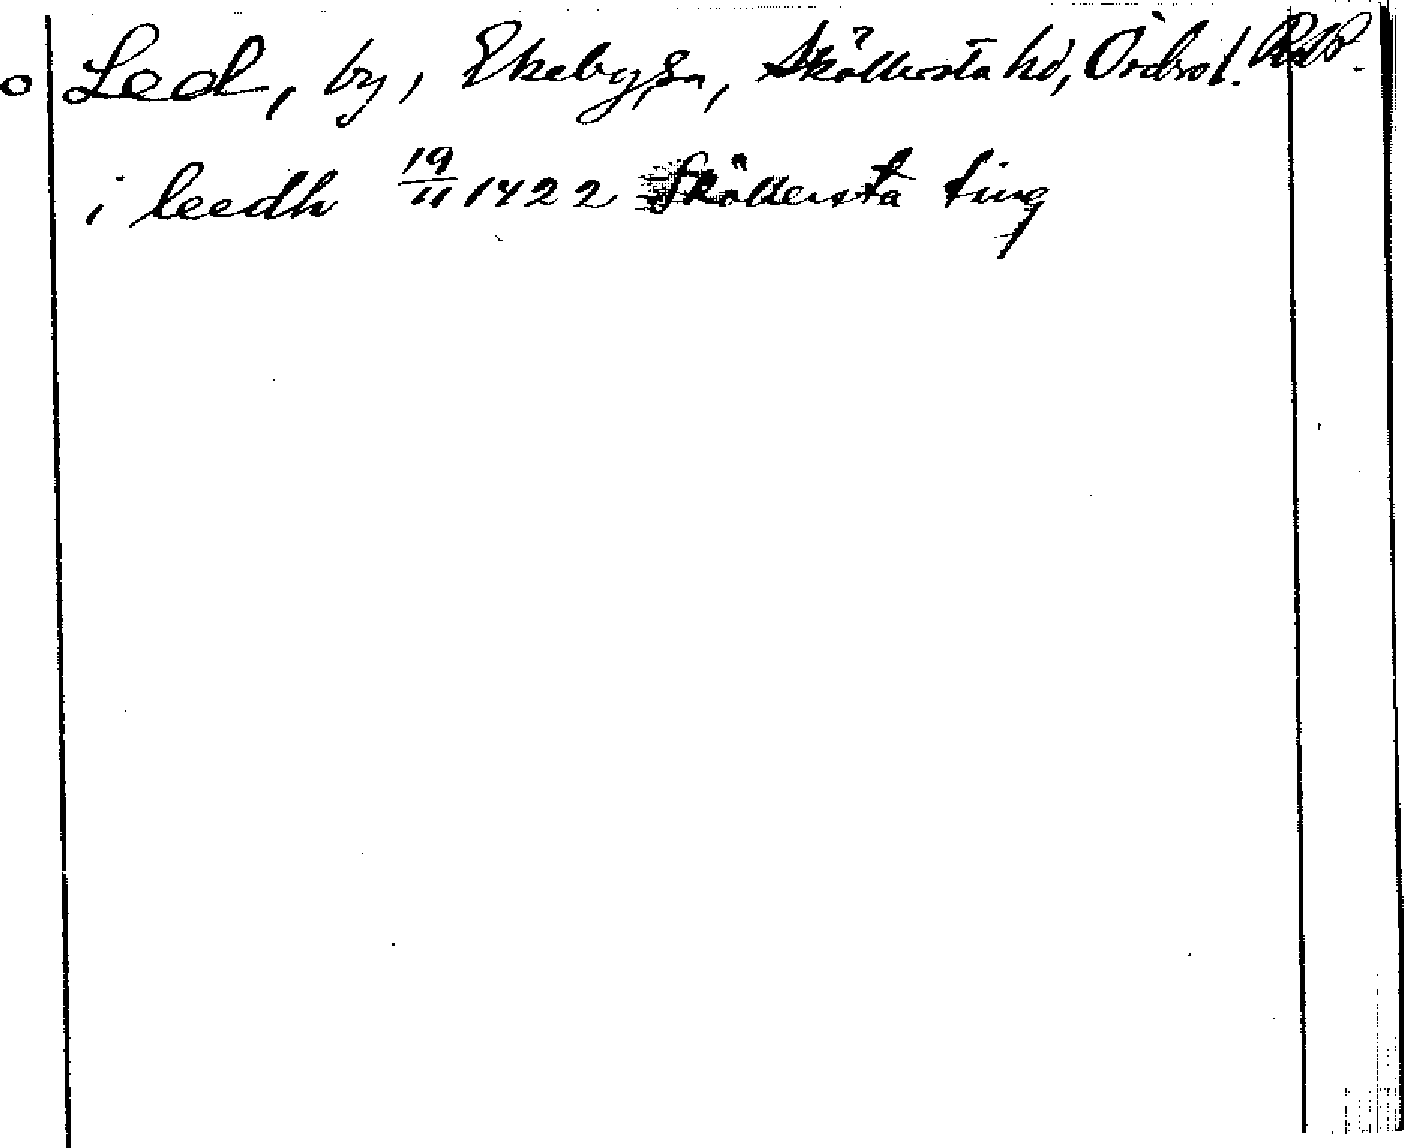 Led, by, Ekeby sn, Sköllersta hd, Örebro l.
i leedh 19/11 1422 Sköllersta ting